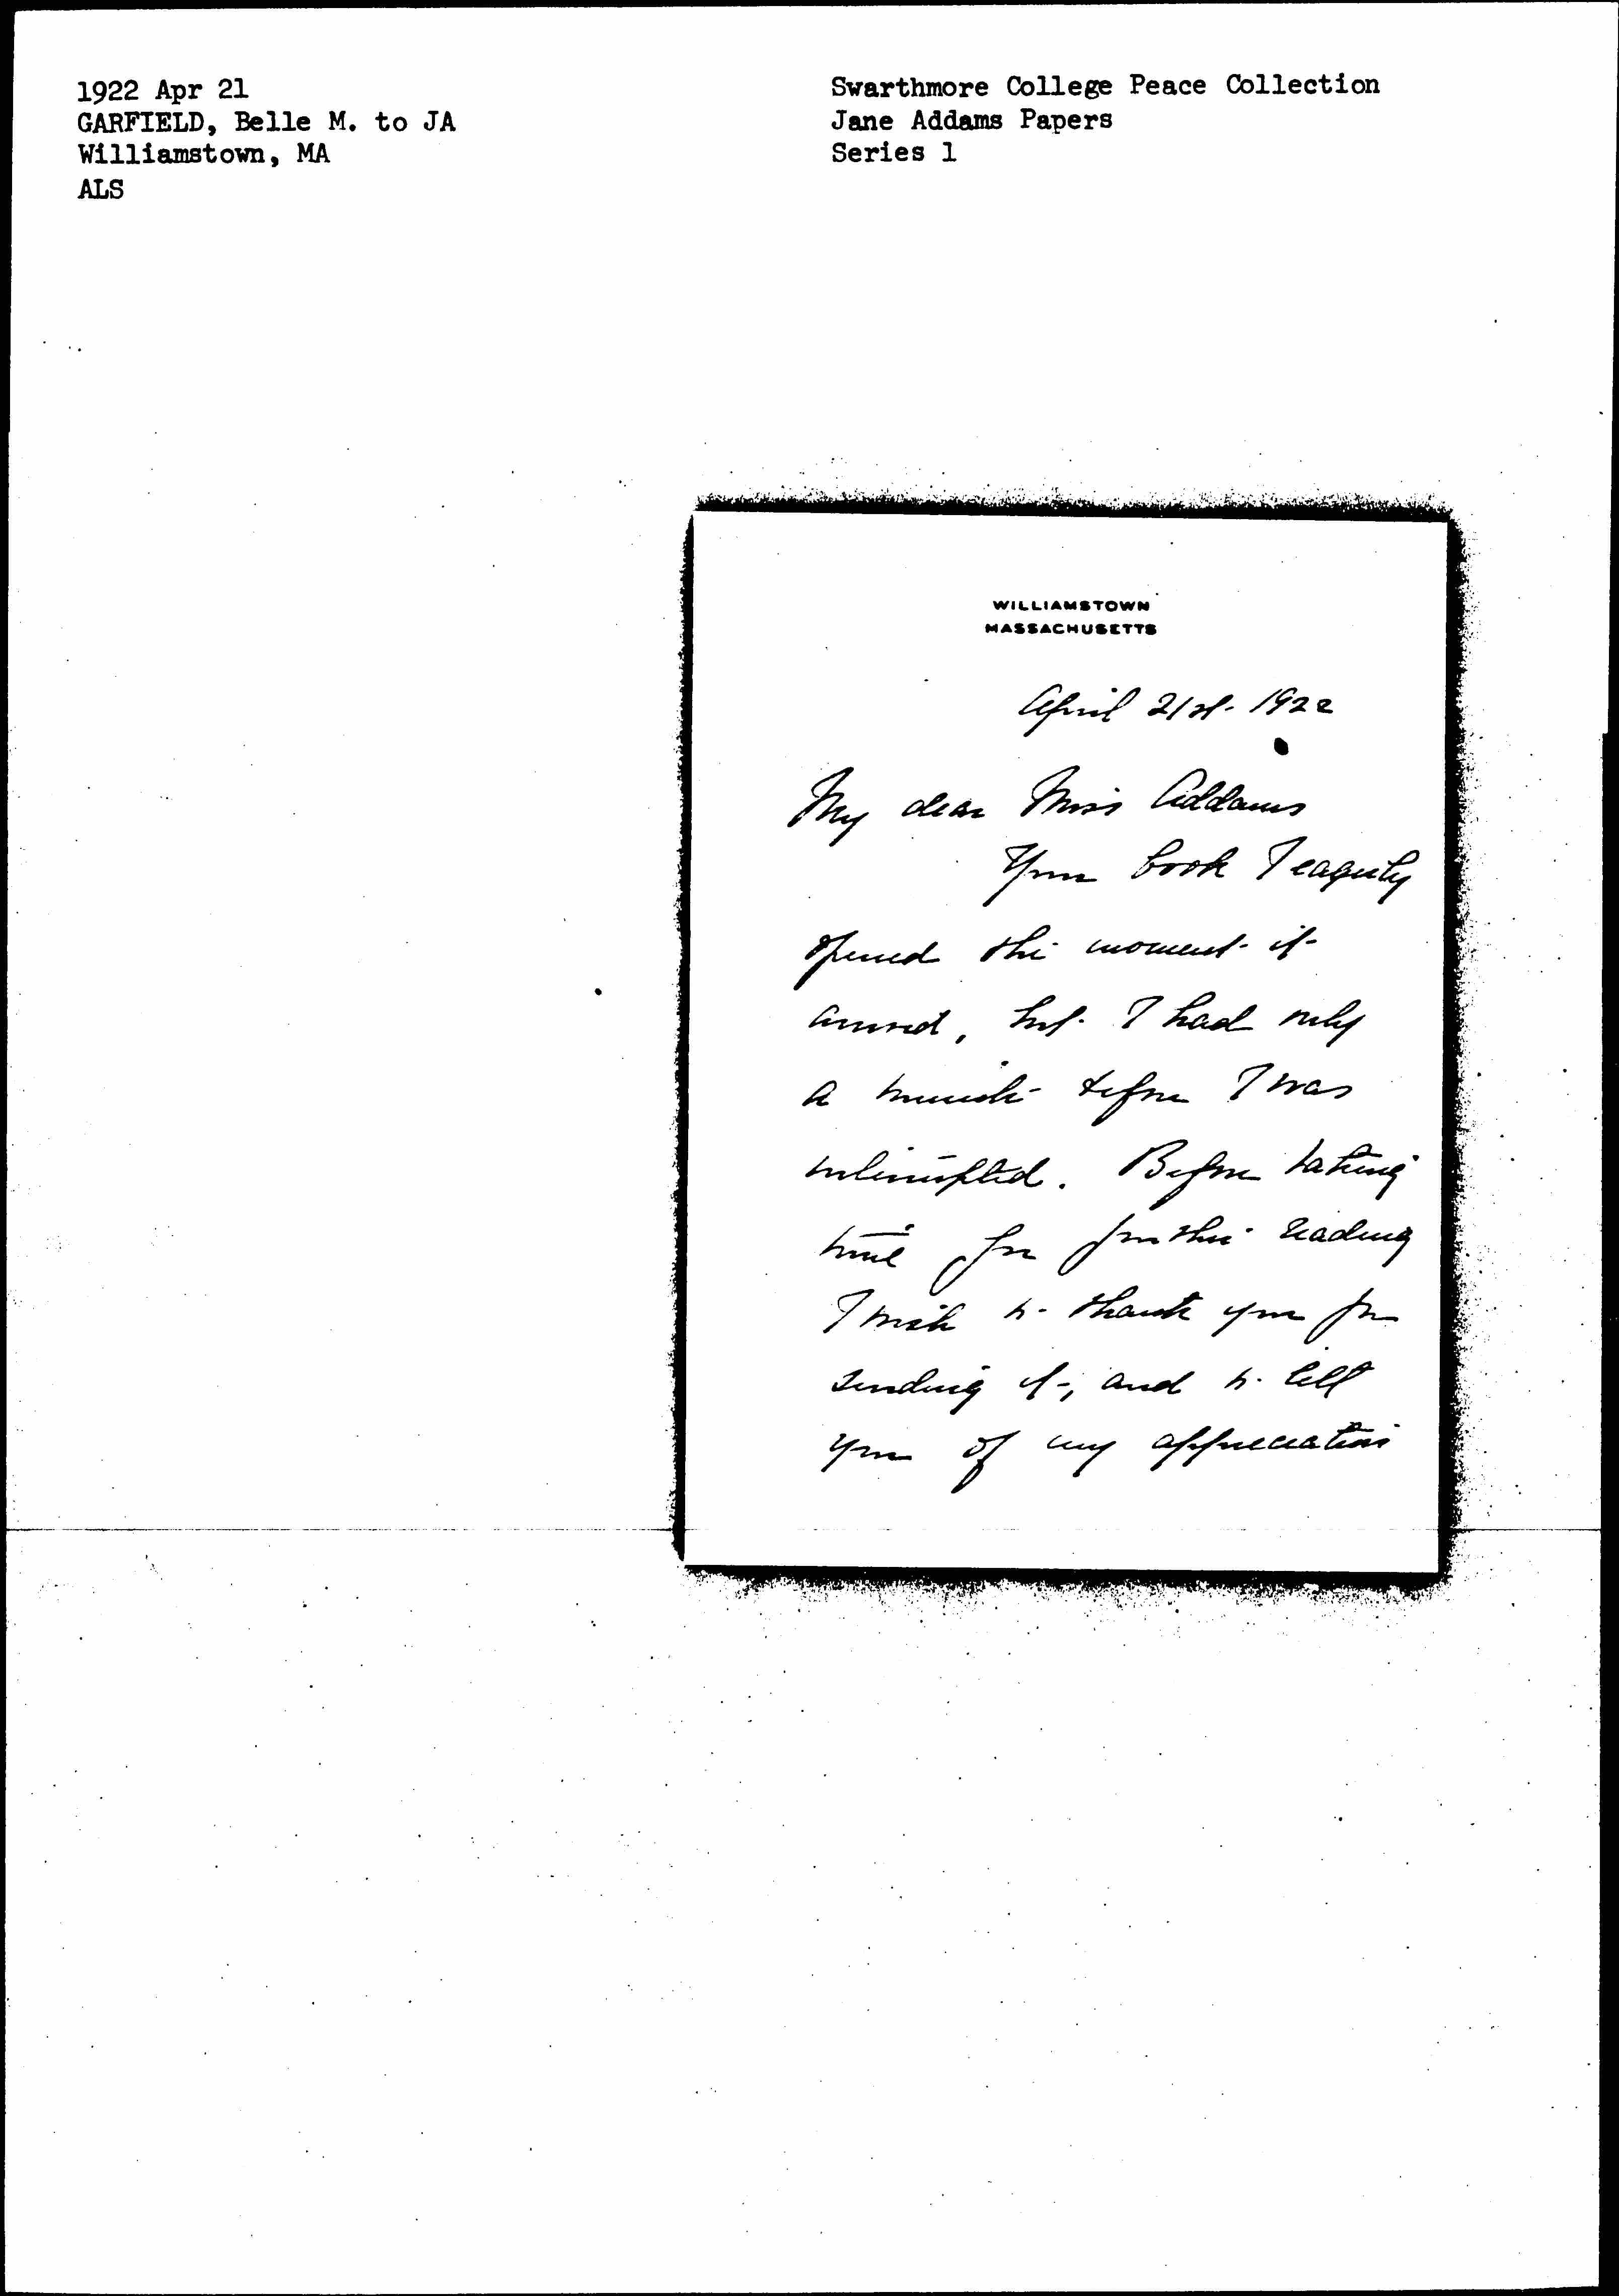 1922 Apr 21
GARFIELD, Belle M. to JA
Williamstown, MA
ALS
Swarthmore College Peace Collection
Jane Addams Papers
Series 1
WILLIAMSTOWN
MASSACHUSETTS
April 21st. 1922
My dear Miss Addams
Your book I eagerly
opened the moment it
arrived, but I had only
a minute before I was
interrupted. Before taking
time for further reading
I wish to thank you for
sending it, and to tell
you of my appreciation